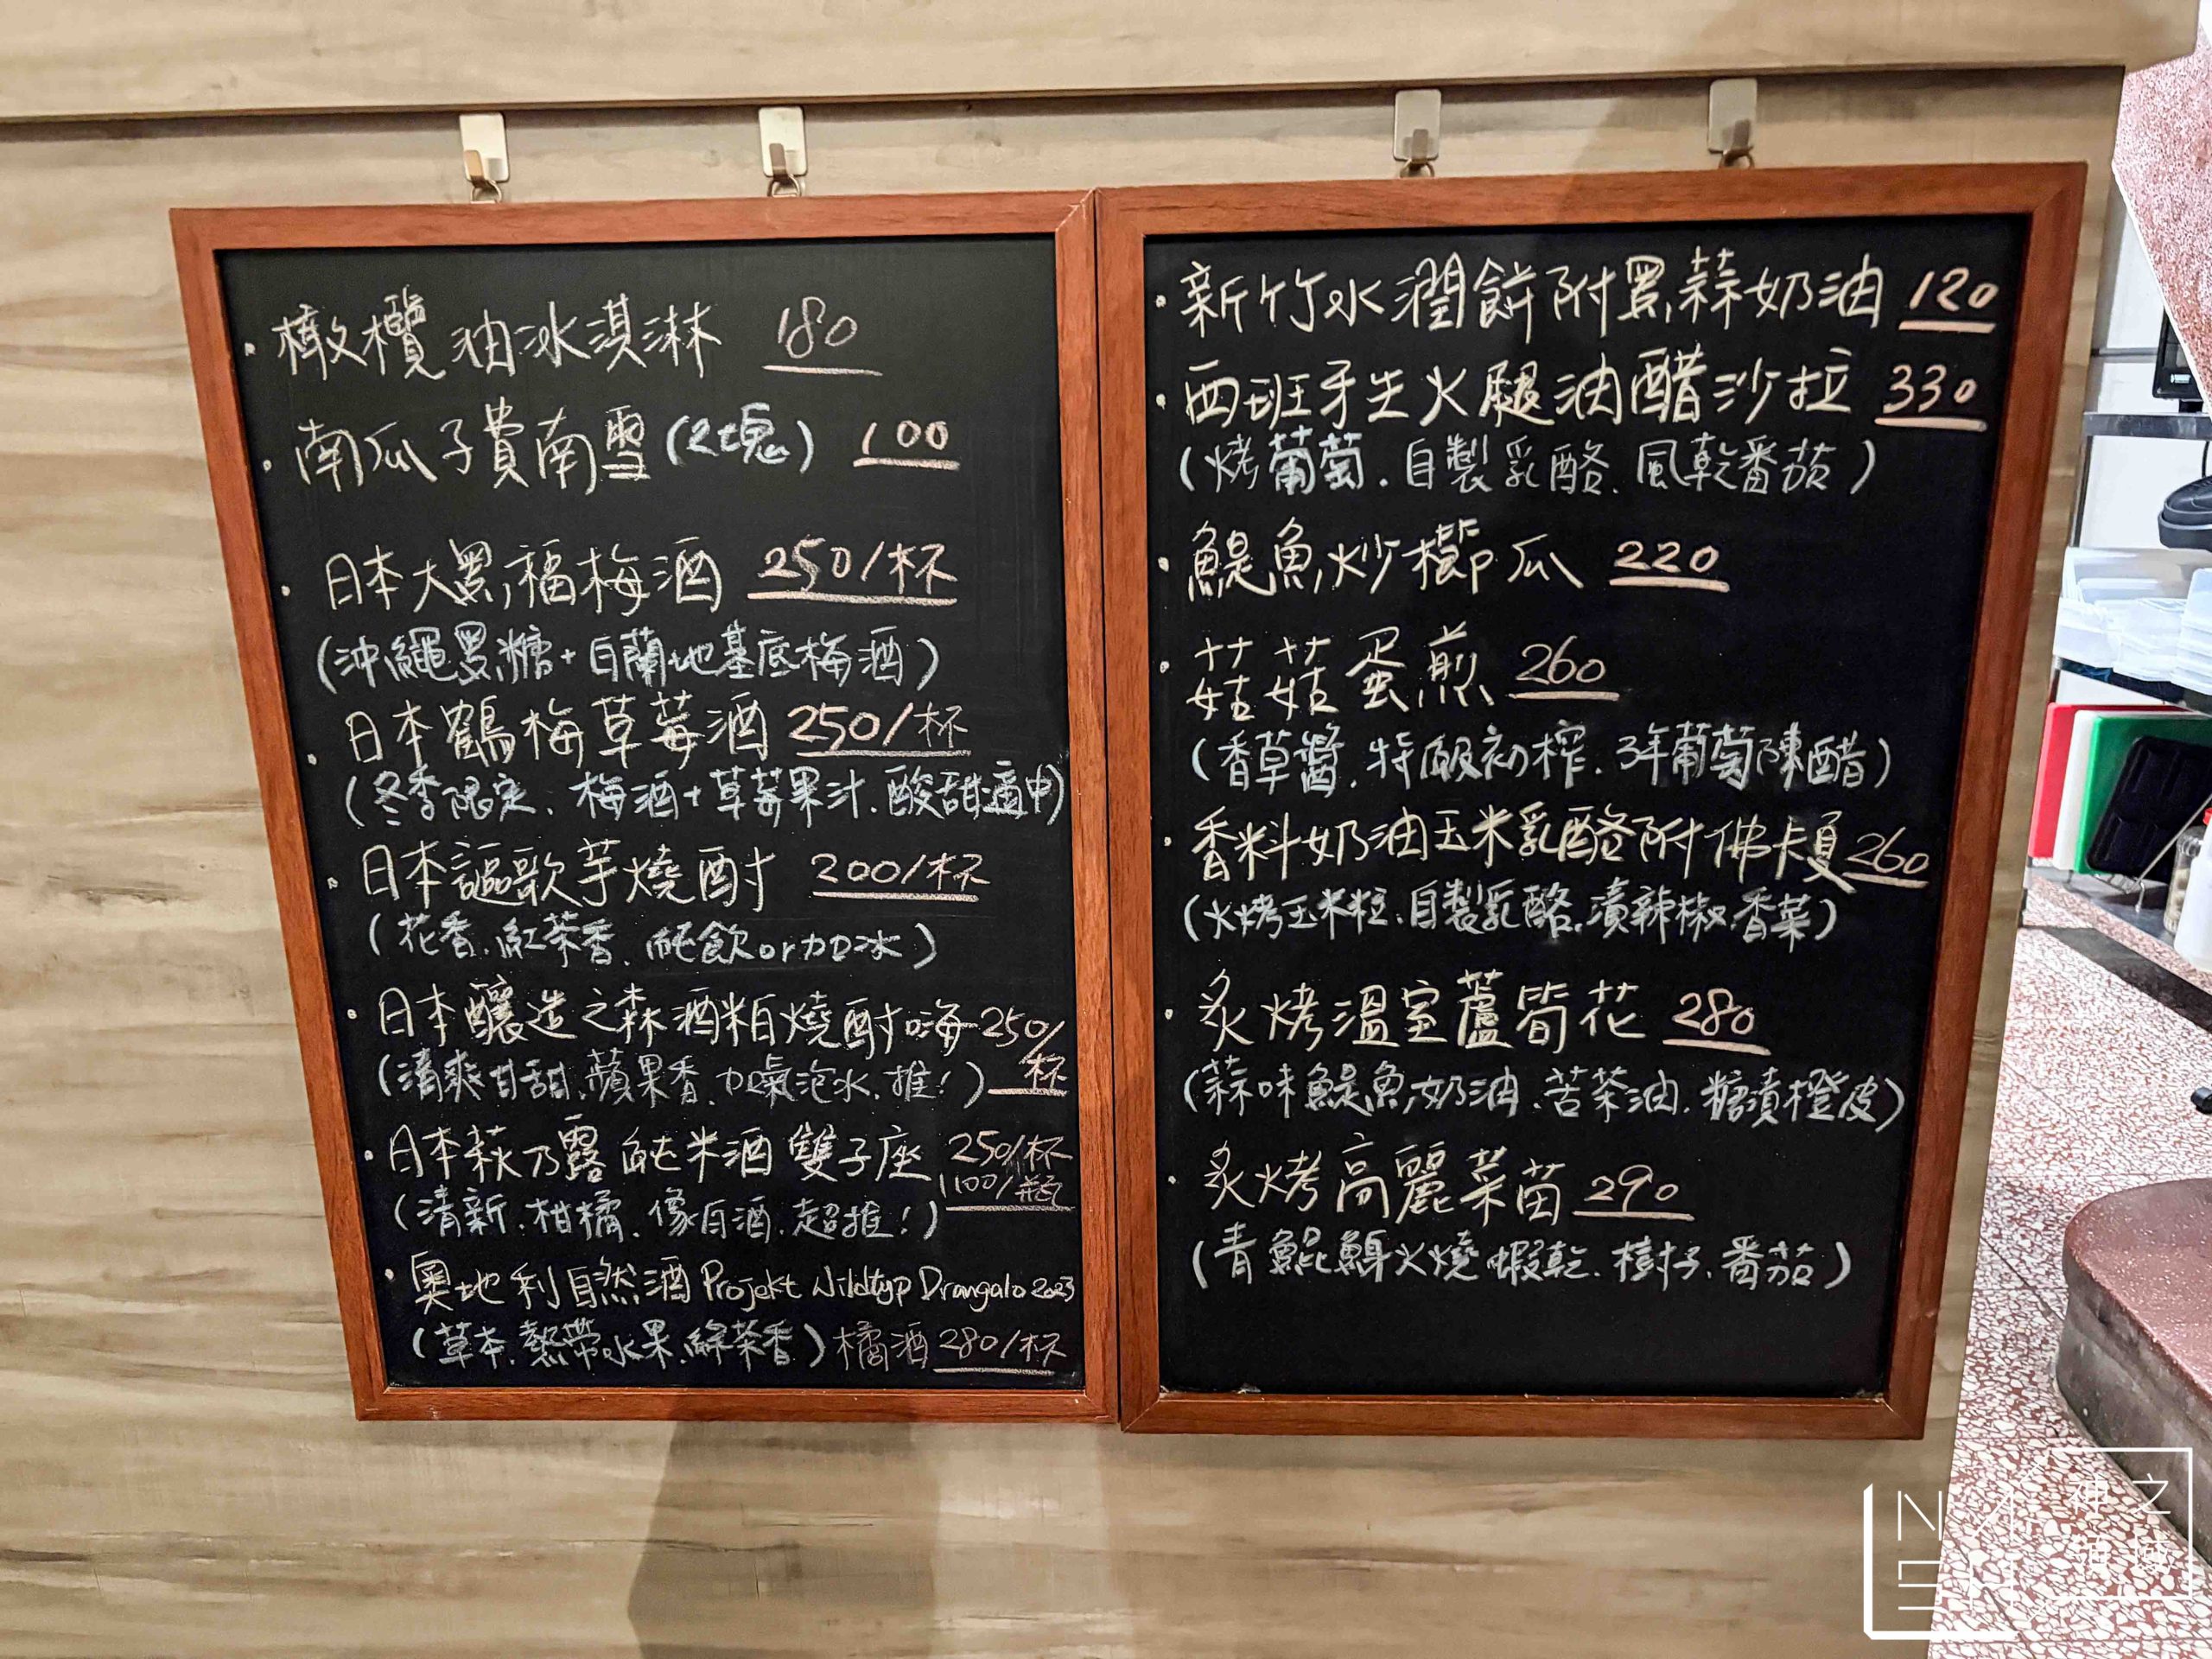 · 橄欖油冰淇淋 180
· 南瓜子費南雪(2塊) 100
· 日本大黑福梅酒 250/杯
(沖繩黑糖+白蘭地基底梅酒)
· 日本鶴梅草莓酒 250/杯
(冬季限定、梅酒+草莓果汁、酸甜適中)
· 日本謳歌芋燒酎 200/杯
(花香、紅茶香、純飲or加冰)
· 日本釀造之森酒粕燒酎嗨 250/杯
(清爽甘甜、蘋果香、加氣泡水、推!)
· 日本萩乃露 純米酒 雙子座 250/杯
1100/瓶
(清新、柑橘、像白酒、超推!)
· 奧地利自然酒 Projekt Wildtyp Drangalo 2023
(草本、熱帶水果、綠茶香) 橘酒 280/杯
· 新竹水潤餅附黑蒜奶油 120
· 西班牙生火腿油醋沙拉 330
(烤葡萄、自製乳酪、風乾番茄)
· 鯷魚炒櫛瓜 220
· 菇菇蛋煎 260
(香草醬、特級初榨、3年葡萄陳醋)
· 香料奶油玉米乳酪附佛卡夏 260
(火烤玉米粒、自製乳酪、漬辣椒、香菜)
· 炙烤溫室蘆筍花 280
(蒜味鯷魚奶油、苦茶油、糖漬橙皮)
· 炙烤高麗菜苗 290
(青鯤鯓火燒蝦乾、樹子、番茄)